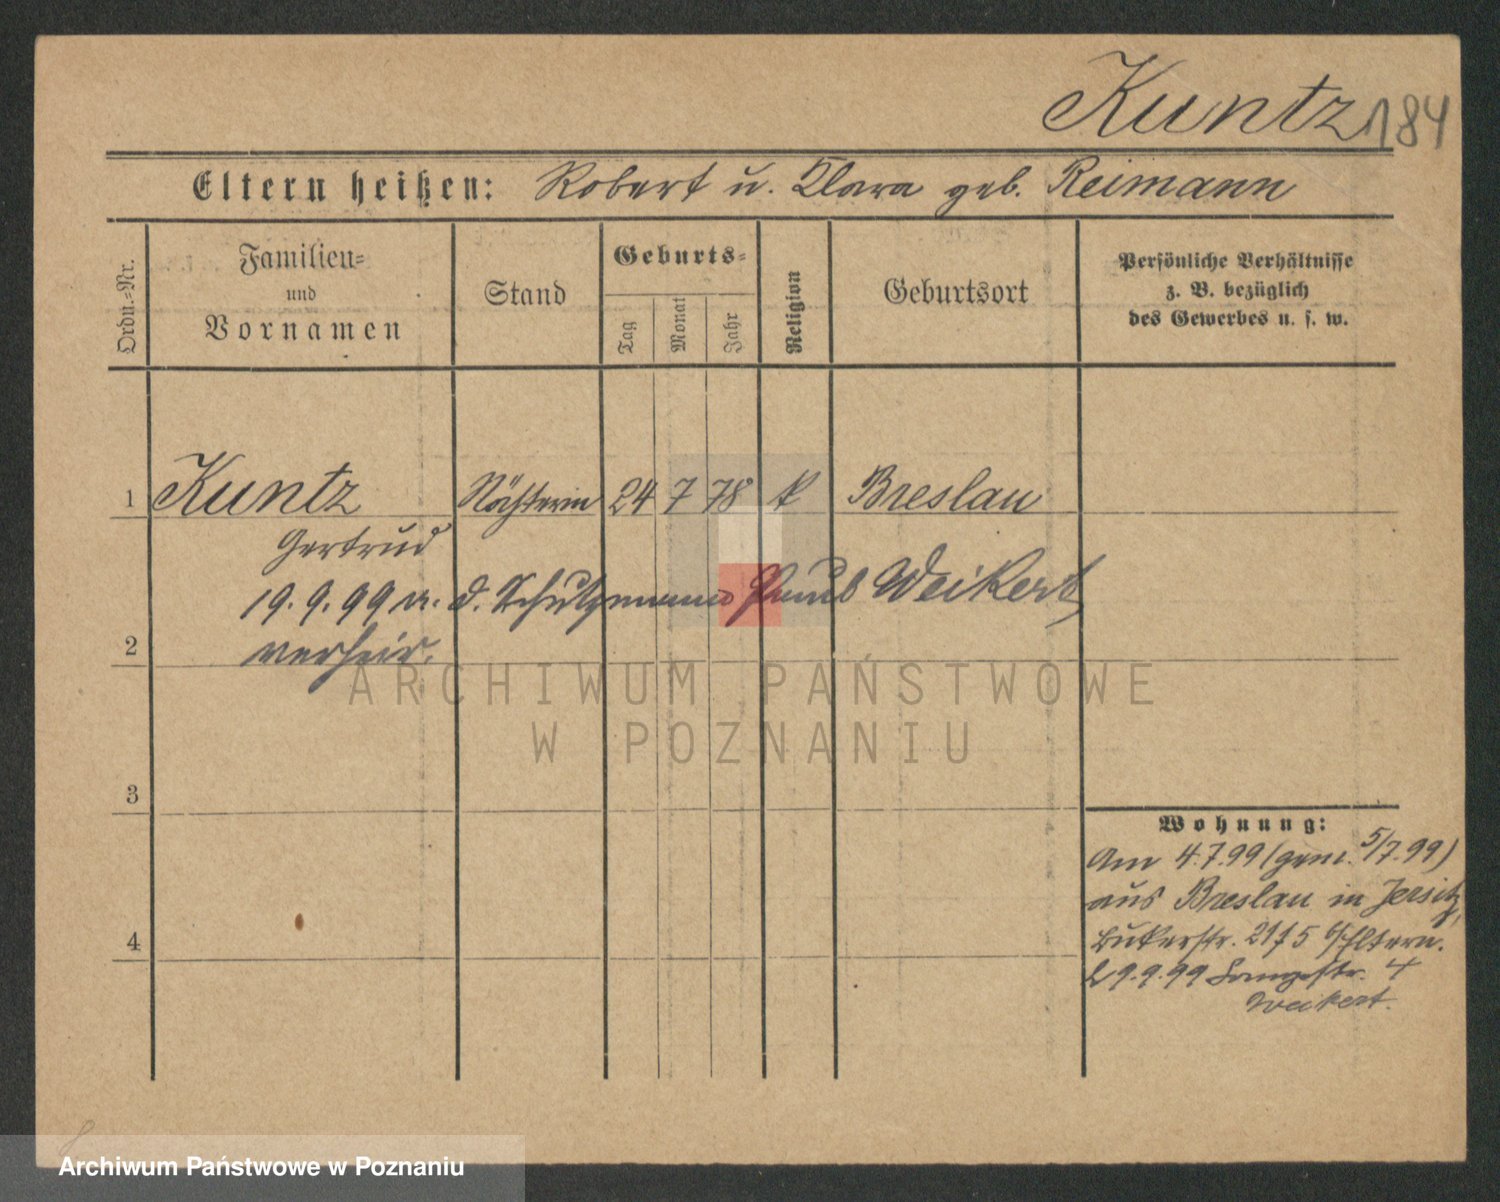 Kuntz 184
Eltern heißen: Robert u. Clara geb. Reimann
Ordn.=Nr.
Familien=
und
Vornamen
Stand
Geburts=
Tag
Monat
Jahr
Religion
Geburtsort
Persönliche Verhältnisse
z. B. bezüglich
des Gewerbes u. s. w.
1 Kuntz Nähterin 24 7 78 k Breslau
Gertrud
19.9.99 m. d. Schutzmann Paul Weikert
2 verheir.
3
4
Wohnung:
Am 4.7.99 (gem. 5/7.99)
aus Breslau in Jersitz,
Bukerstr. b/Eltern.
9.9.99 Langestr. 4
Weikert.
ARCHIWUM PAŃSTWOWE
W POZNANIU
Archiwum Państwowe w Poznaniu